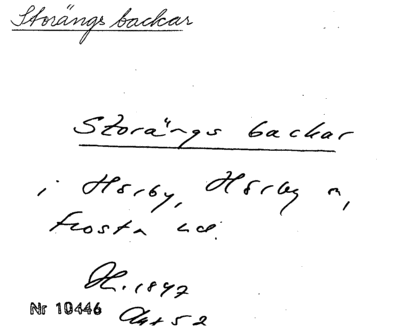 Storängs backar
Storängs backar
i Hörby, Hörby s,
Frosta hd.
H. 1847
Nr 10446
Akt 52